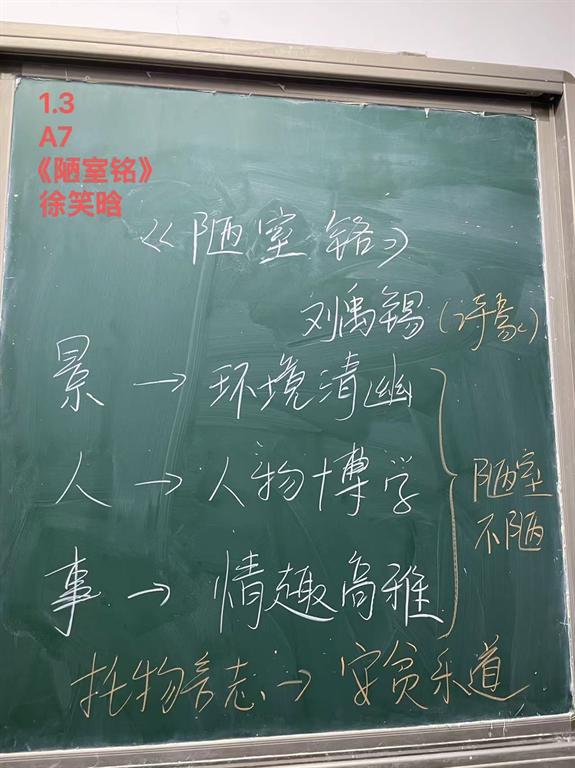 1.3
A7
《陋室铭》
徐笑晗
《陋室铭》
刘禹锡（诗豪）
景→环境清幽
人→人物博学
事→情趣高雅
陋室
不陋
托物言志→安贫乐道